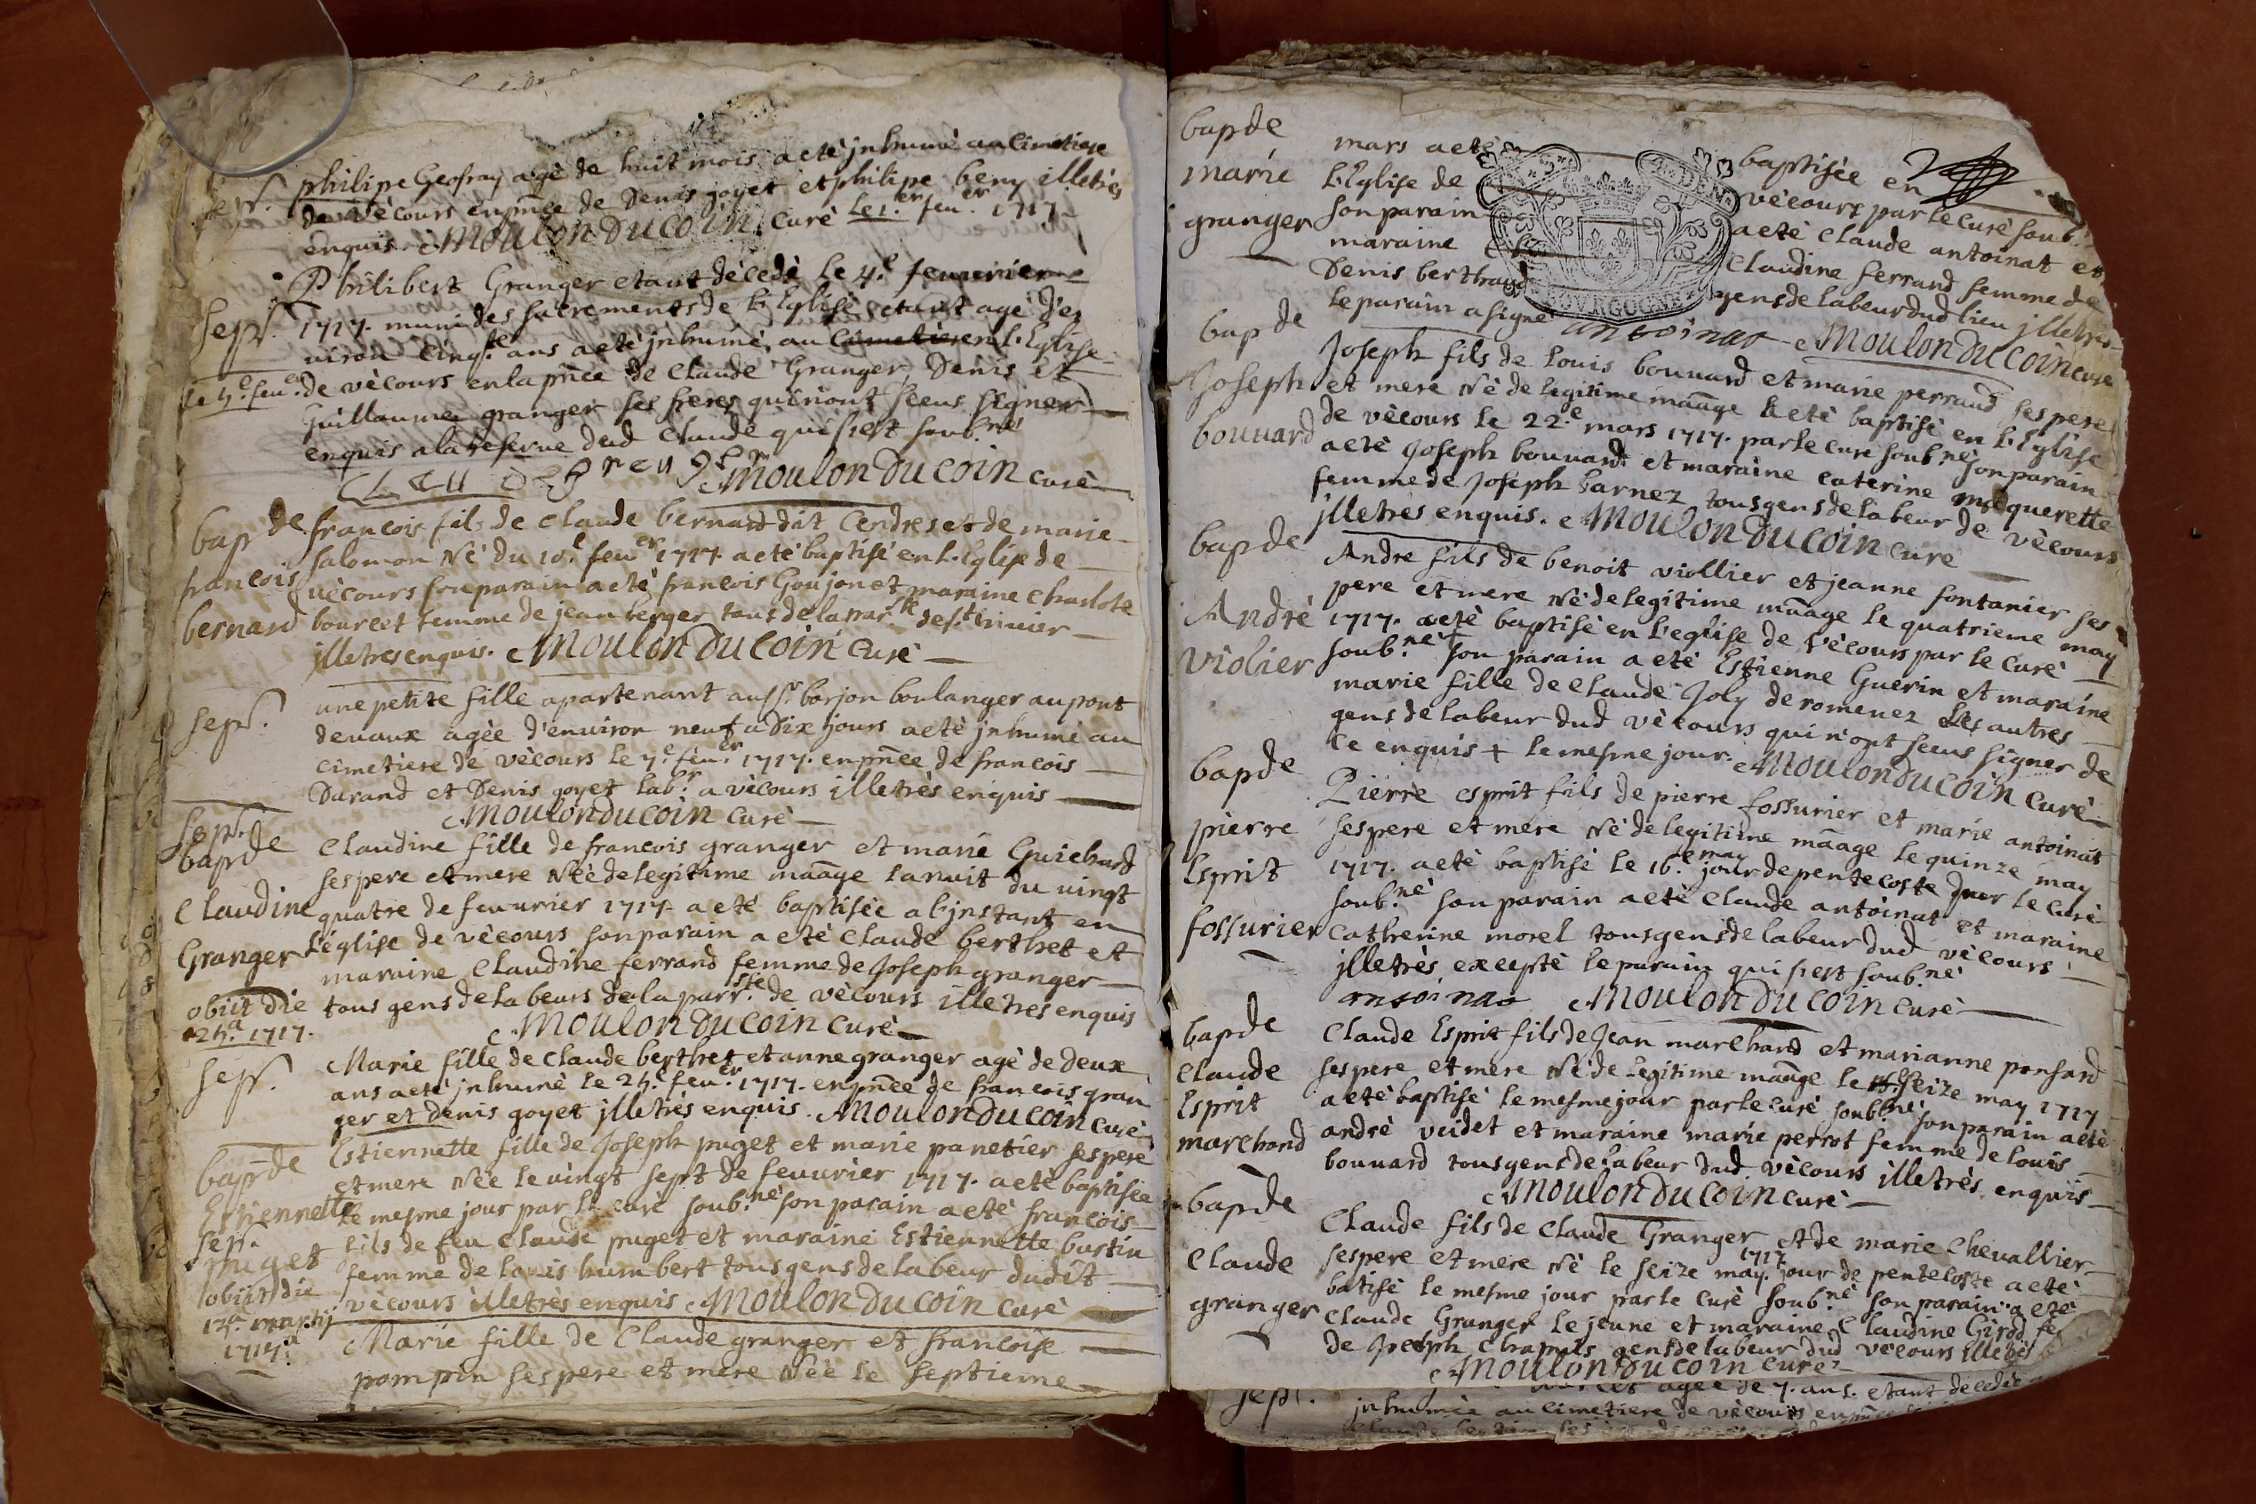 philipe Geofray agè de huit mois a etè jnhumè au cimetiere
de vècours enpñce de Denis goyet et philipe beny illetrès
enquis Moulon Du Coin Curè le 1.er feu.er 1717
Philibert Granger etant dècedè le 4.e feuurier
sep.r 1717. muni des sacrements de L'Eglise etant agè d'en
uiron cinq.te ans a etè jnhumè au Cimetiere en L'Eglise
le 5.e feu.er de vècours en la pñce de Claude Granger, Denis et
Guillaume granger ses freres qui n'ont sceus signer
enquis a la reserue dud Claude qui s'est soub.nè
Moulon Du Coin Curè
bap de francois fils de Claude bernard dit Cendres et de marie
salomon Nè du 10.e feu.er 1717 a etè baptisè en L'Eglise de
francois vècours son parain a etè francois Goujon et maraine charlote
bernard bourcet femme de jean berger tous de la par.sse de s.t triuier
jlletres enquis. Moulon Du Coin Curè
sep.r une petite fille apartenant au s.r borjon boulanger au pont
deuaux agèe d'enuiron neuf a Dix jours a etè jnhumè au
cimetiere de vècours le 7.e feu.er 1717. enpñce de francois
Durand et Denis goyet lab.r a vècours illetrès enquis
Moulon du Coin Curè
sep.r
bap de Claudine fille de francois granger et marie Guichard
ses pere et mere Nèe de legitime maãge la nuit du uingt
Claudine quatre de feuurier 1717. a etè baptisèe a l'jnstant en
Granger L'église de vècours son parain a etè Claude berthet et
maraine Claudine ferrand femme de Joseph granger
obiit die tous gens de labeurs de la parr.sse de vècours illetres enquis
25.a 1717. Moulon Du Coin Curè
sep.r Marie fille de Claude berthet et anne granger agè de deux
ans a etè jnhumè le 25.e feu.er 1717. enpñce de francois gran
ger et denis goyet jlletrès enquis. Moulon Du Coin Curè
bap de Estiennette fille de Joseph puget et marie panetier ses pere
et mere Nèe le uingt sept de feuurier 1717. a etè baptisèe
Estiennette le mesme jour par le curè soub.nè son parain a etè francois
sep.r fils de feu Claude puget et maraine Estiennette bastin
puget femme de louis humbert tous gens de labeur dudit
obiit die vècours illetrès enquis Moulon Du Coin Curè
12.a martij Marie fille de Claude granger et francoise
1717.a pompin ses pere et mere Nèe le septieme
bap de mars a etè baptisèe en
marie L'Eglise de vècours par le Curè soub.
granger son parain a etè Claude antoinat et
maraine Claudine ferrand femme de
Denis berthaud gens de labeur dud lieu jlletrès
le parain a signè antoinat Moulon Du Coin Cure
bap de Joseph fils de louis bouuard et marie perraud ses pere
Joseph et mere Nè de legitime maãge a etè baptisè en L'Eglise
bouuard de vècours le 22.e mars 1717. par le cure soub.nè son parain
a etè Joseph bouuard et maraine caterine
femme de Joseph barnez tous gens de labeur de vècours
jlletrès enquis. Moulon Du Coin Cure
bap de Andre fils de benoit viollier et jeanne fontanier ses
pere et mere Nè de legitime maãge le quatrieme may
Andrè 1717. a etè baptisè en L'eglise de vècours par le Curè
violier soub.nè + son parain a etè Estienne Guerin et maraine
marie fille de Claude Joly de romenez Les autres
gens de labeur dud vècours qui n'ont sceus signer de
ce enquis + le mesme jour. Moulon du Coin Curè
bap de Pierre esprit fils de pierre fossurier et marie antoinat
pierre ses pere et mere Nè de legitime maãge le quinze may
Esprit 1717. a etè baptisè le 16.e may jour de pentecoste par le Curè
fossurier soub.nè son parain a etè Claude antoinat et maraine
Catherine morel tous gens de labeur dud vècours
jlletrès exceptè le parain qui s'est soub.nè
antoinat Moulon Du Coin Curè
bap de Claude Esprit fils de Jean marchand et marianne ponsard
Claude ses pere et mere Nè de legitime maãge le seize may 1717
Esprit a etè baptisè le mesme jour par le curè soub.nè son parain a etè
marchand andrè uidet et maraine marie perrot femme de louis
bouuard tous gens de labeur dud vècours illetrès enquis
Moulon Du Coin Curè
bap de Claude fils de Claude Granger et de marie Chevallier
Claude ses pere et mere Nè le seize may 1717. jour de pentecoste a etè
granger batisè le mesme jour par le curè soub.nè son parain a etè
Claude Granger le jeune et maraine Claudine Girod
de Joseph gens de labeur dud vècours
Moulon Du Coin Curè
sep.r agèe de 7. ans. etant decedèe
jnhumèe au cimetiere de vècours